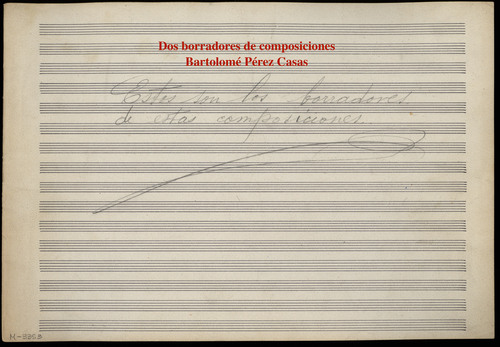 Dos borradores de composiciones
Bartolomé Pérez Casas
Estos son los borradores
de estas composiciones.